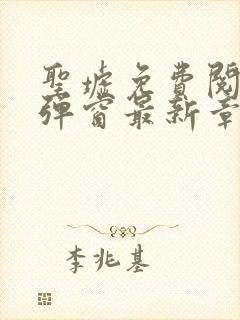 聖墟免費閱
彈窗最新章
李兆基